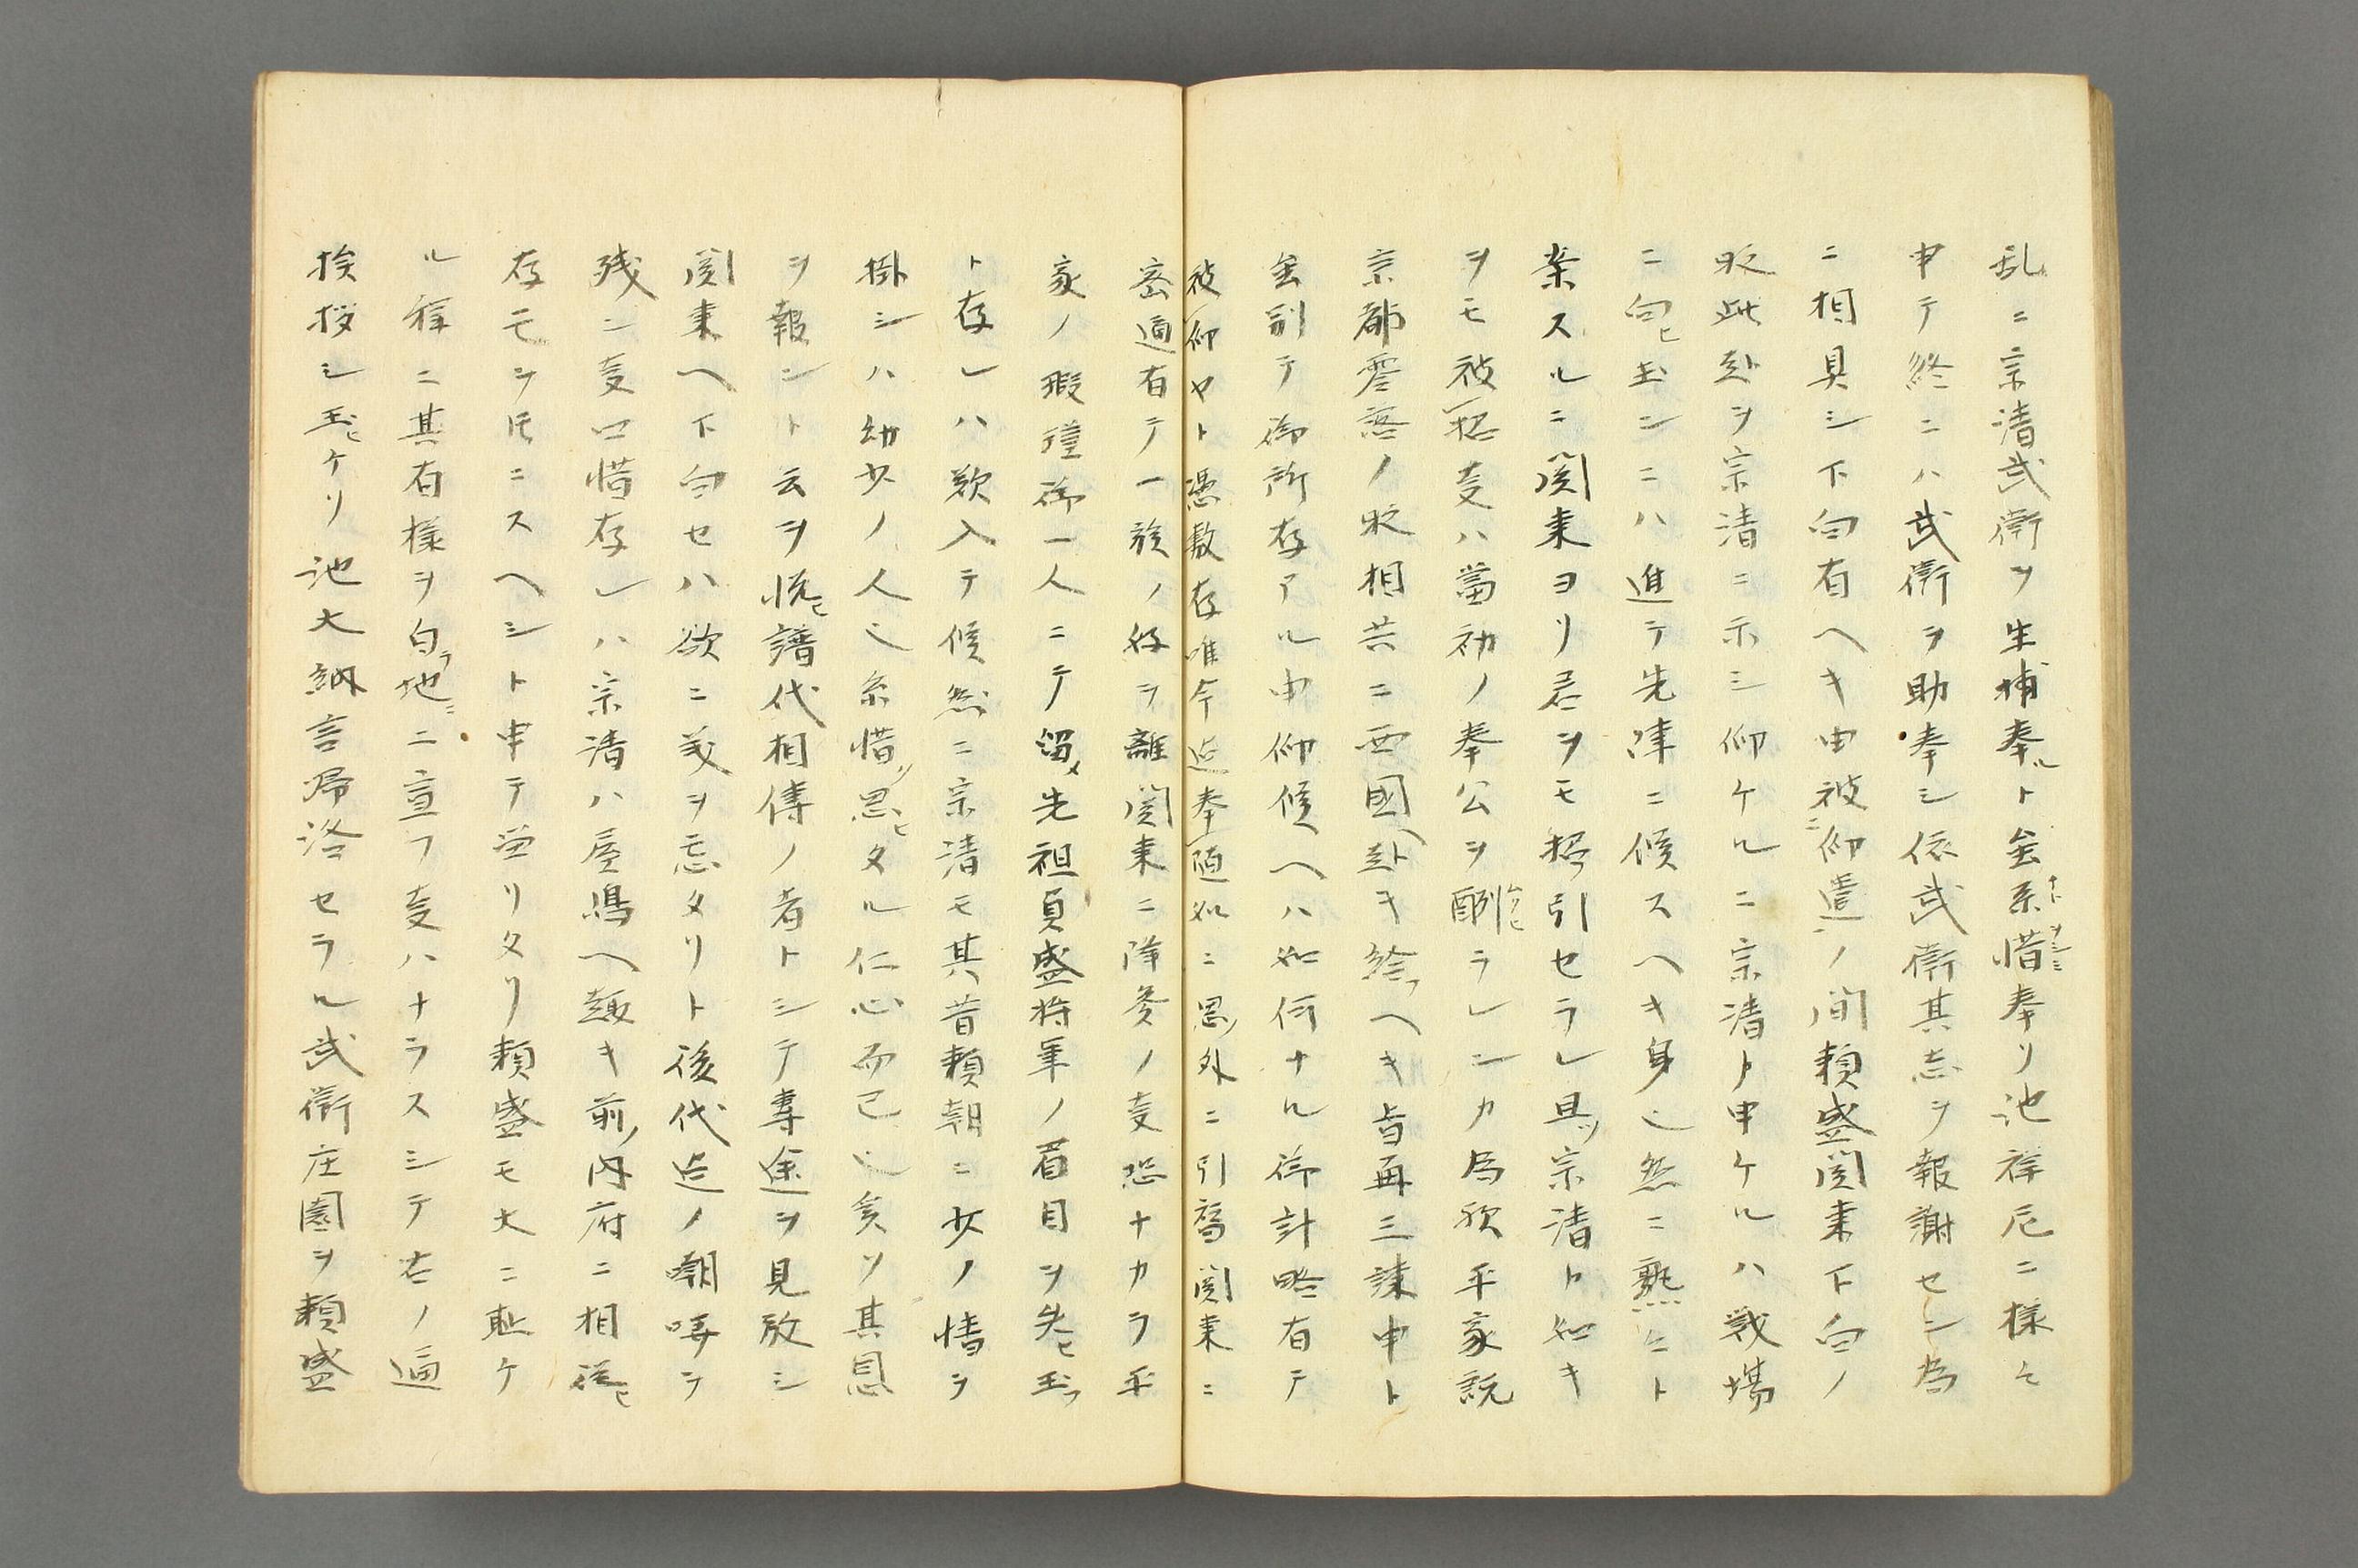 乱ニ宗清武衛ヲ生捕奉ルト𪜈糸惜奉リ池禅尼ニ様々
申テ終ニハ武衛ヲ助奉シ依武衛其志ヲ報謝セン為
ニ相具シ下向有ヘキ由被仰遣ノ間頼盛関東下向ノ
砌此赴ヲ宗清ニ示シ仰ケルニ宗清ト申ケルハ戦場
ニ向ヒ玉ンニハ進テ先陣ニ候スヘキ身也然ニ熟々ト
案スルニ関東ヨリ君ヲモ招引セラレ且ツ宗清ト如キ
ヲモ被招叓ハ當初ノ奉公ヲ酬ラレンカ為歟平家説
京都零落ノ砌相共ニ西國ヘ赴キ給フヘキ旨再三諌申ト
𪜈別テ御所存アル由仰候ヘハ如何ナル御計略有テ
被仰ヤト憑敷存唯今迠奉随如ニ思ノ外ニ引篭関東ニ
密通有テ一族ノ好ヲ離関東ニ降参ノ叓恐ナカラ平
家ノ瑕瑾御一人ニテ留メ先祖貞盛将軍ノ眉目ヲ失ヒ玉フ
ト存レハ歎入テ候然ニ宗清モ其昔頼朝ニ少ノ情ヲ
掛シハ幼少ノ人也糸惜ク思ヒタル仁心而已也矣ソ其恩
ヲ報ント云ヲ悦ヒ譜代相傳ノ者トシテ専途ヲ見放シ
関東ヘ下向セハ欲ニ義ヲ忘タリト後代迠ノ嘲哢ヲ
残ン叓口惜存レハ宗清ハ屋嶋ヘ趣キ前ノ内府ニ相従ヒ
存モシ死ニスヘシト申テ登リタリ頼盛モ大ニ恥ケ
ル稱ニ其有様ヲ白地ニ宣フ叓ハナラスシテ右ノ通
挨拶シ玉ヒケリ池大納言帰洛セラル武衛庄園ヲ頼盛